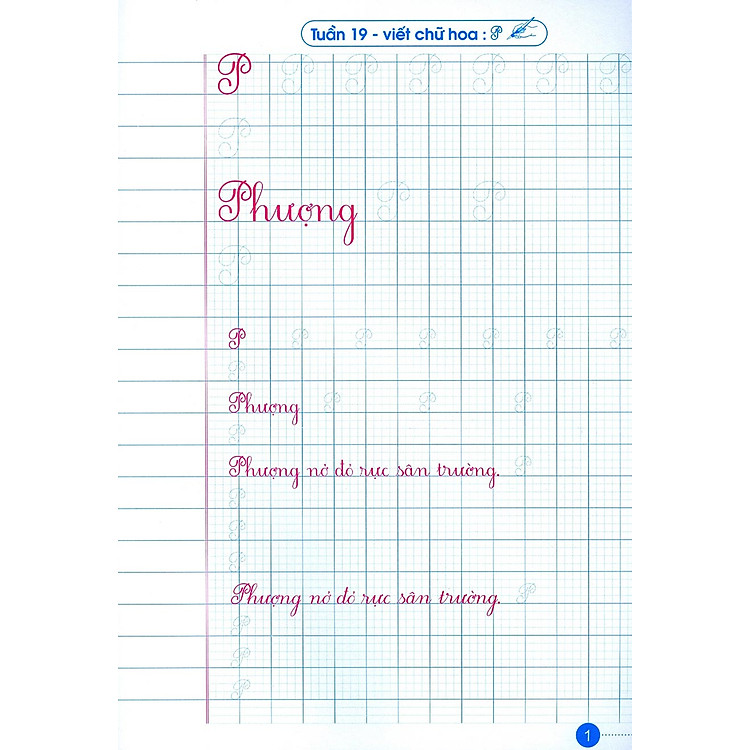 Tuần 19 - viết chữ hoa : P
P P P P P P P
P
Phượng P P
P
P P P P P P P
P
Phượng P P P
P
Phượng nở đỏ rực sân trường. P
P
P
P
Phượng nở đỏ rực sân trường. P
P
P
P
1